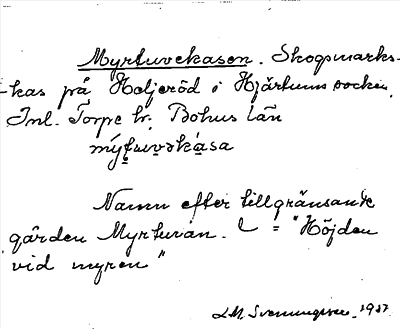 Myrtuvekasen. Skogsmarks-
-kas på Holjeröd i Hjärtums socken,
Inl. Torpe hr. Bohus län
mýt̯uvəkása
Namn efter tillgränsande
gården Myrtuvan. = "Höjden
vid myren"
L.M. Svenungsson. 1937